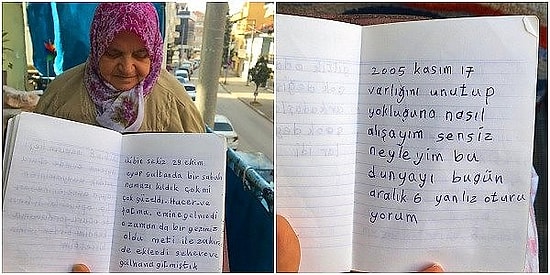 sekiz 29 ekim
eyup sultanda bir sabah
namazı kıldık çok mi
çok güzeldi. Hacer ve
fatma, emine gelmedi
o zaman da bir gezimiz
oldu meti ile zakire
de eklendi sehere ve
gülhana gitmiştik
2005 kasım 17
varlığını unutup
yokluğuna nasıl
alışayım sensiz
neyleyim bu
dunyayı bugün
aralık 6 yanlız oturu
yorum